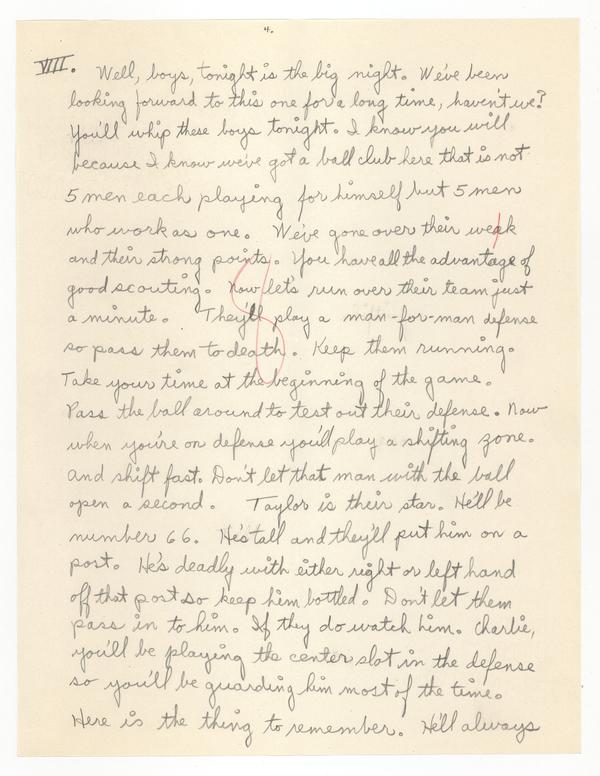 4.
VIII. Well, boys, tonight is the big night. We've been
looking forward to this one for a long time, haven't we?
You'll whip these boys tonight. I know you will
because I know we've got a ball club here that is not
5 men each playing for himself but 5 men
who work as one. We've gone over their weak
and their strong points. You have all the advantage of
good scouting. Now let's run over their team just
a minute. They'll play a man-for-man defense
so pass them to death. Keep them running.
Take your time at the beginning of the game.
Pass the ball around to test out their defense. Now
when you're on defense you'll play a shifting zone.
And shift fast. Don't let that man with the ball
open a second. Taylor is their star. He'll be
number 66. He's tall and they'll put him on a
post. He's deadly with either right or left hand
off that post so keep him bottled. Don't let them
pass in to him. If they do watch him. Charlie,
you'll be playing the center slot in the defense
so you'll be guarding him most of the time.
Here is the thing to remember. He'll always